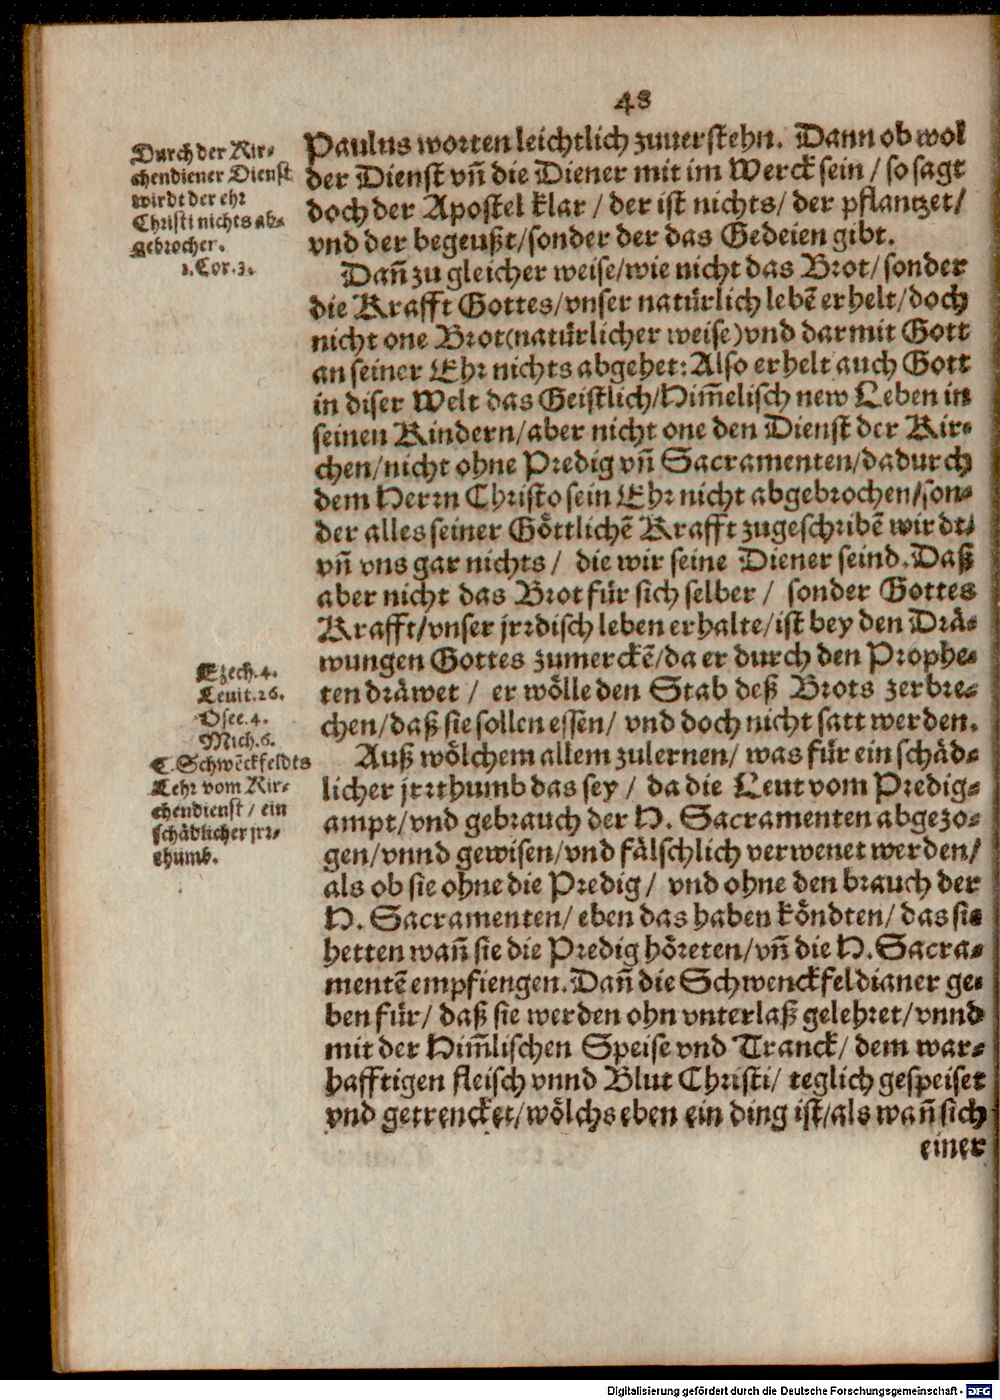 48
Durch der Kir-
chendiener Dienst
wirdt der ehr
Christi nichts ab-
gebrochen.
1. Cor. 3.
Paulus worten leichtlich zuuerstehn. Dann ob wol
der Dienst vñ die Diener mit im Werck sein / so sagt
doch der Apostel klar / der ist nichts / der pflantzet /
vnd der begeußt / sonder der das Gedeien gibt.
Dañ zu gleicher weise / wie nicht das Brot / sonder
die Krafft Gottes / vnser natürlich lebẽ erhelt / doch
nicht one Brot (natürlicher weise) vnd darmit Gott
an seiner Ehr nichts abgehet: Also erhelt auch Gott
in diser Welt das Geistlich / Him̃elisch new Leben in
seinen Kindern / aber nicht one den Dienst der Kir-
chen / nicht ohne Predig vñ Sacramenten / dadurch
dem Herrn Christo sein Ehr nicht abgebrochen / son-
der alles seiner Göttlichẽ Krafft zugeschribẽ wirdt /
vñ vns gar nichts / die wir seine Diener seind. Daß
aber nicht das Brot für sich selber / sonder Gottes
Krafft / vnser jrrdisch leben erhalte / ist bey den Drä-
wungen Gottes zumerckẽ / da er durch den Prophe-
ten dräwet / er wölle den Stab deß Brots zerbre-
chen / daß sie sollen essen / vnd doch nicht satt werden.
Ezech. 4.
Leuit. 26.
Osee. 4.
Mich. 6.
C. Schwẽckfeldts
Lehr vom Kir-
chendienst / ein
schädlicher jrr-
thumb.
Auß wölchem allem zulernen / was für ein schäd-
licher jrrthumb das sey / da die Leut vom Predig-
ampt / vnd gebrauch der H. Sacramenten abgezo-
gen / vnnd gewisen / vnd fälschlich verwenet werden /
als ob sie ohne die Predig / vnd ohne den brauch der
H. Sacramenten / eben das haben köndten / das sie
hetten wañ sie die Predig höreten / vñ die H. Sacra-
mentẽ empfiengen. Dañ die Schwenckfeldianer ge-
ben für / daß sie werden ohn vnterlaß gelehret / vnnd
mit der Him̃lischen Speise vnd Tranck / dem war-
hafftigen fleisch vnnd Blut Christi / teglich gespeiset
vnd getrencket / wölchs eben ein ding ist / als wañ sich
einer
Digitalisierung gefördert durch die Deutsche Forschungsgemeinschaft - DFG